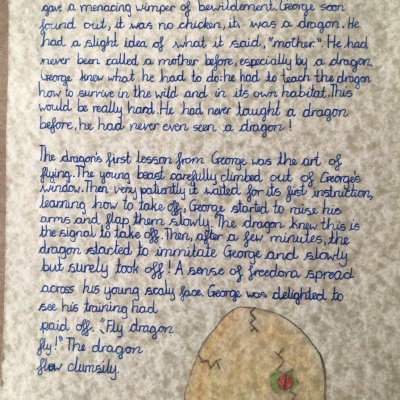 gave a menacing wimper of bewildement. George soon
found out, it was no chicken, it was a dragon. He
had a slight idea of what it said, "mother". He had
never been called a mother before, especially by a dragon.
George knew what he had to do: he had to teach the dragon
how to survive in the wild and in its own habitat. This
would be really hard. He had never taught a dragon
before, he had never even seen a dragon!
The dragon's first lesson from George was the art of
flying. The young beast carefully climbed out of George's
window. Then very patiently it waited for its first instruction,
learning how to take off. George started to raise his
arms and flap them slowly. The dragon knew this is
the signal to take off. Then, after a few minutes, the
dragon started to immitate George and slowly
but surely took off! A sense of freedom spread
across his young scaly face. George was delighted to
see his training had
paid off. "Fly dragon
fly!" The dragon
flew clumsily.